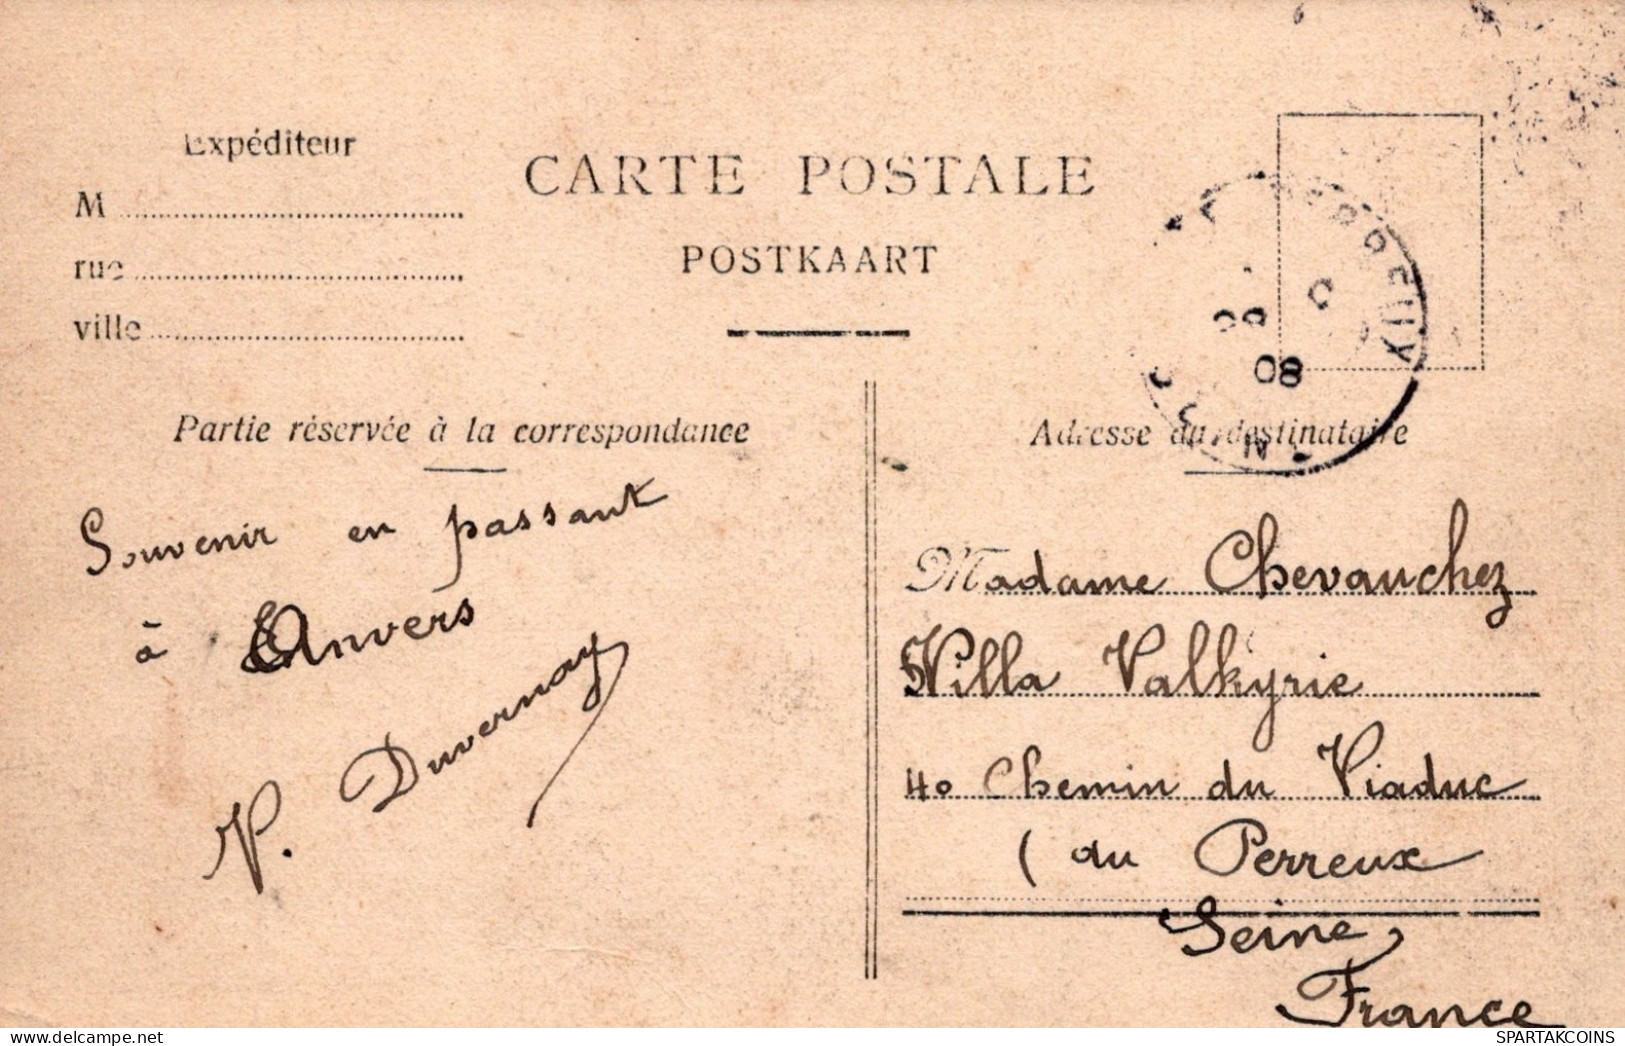 Expéditeur
M
rue
ville
CARTE POSTALE
POSTKAART
08
Partie réservée à la correspondance
Adresse du destinataire
Souvenir en passant
à Anvers
V. Duvernay
Madame Chevauchez
Villa Valkyrie
40 Chemin du Viaduc
( du Perreux
Seine
France
hippostcard.com
SPARTAKCOINS